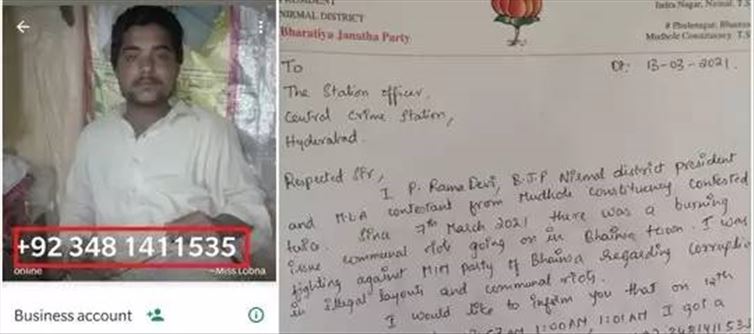 +92 348 1411535
online
~Miss Lobna
Business account
PRESIDENT
NIRMAL DISTRICT
Bharatiya Janatha Party
Indra Nagar, Nirmal, T.S
# Phulenagar, Bhainsa
Mudhole Constituency, T.S
To
Dt: 13-03-2021.
The Station officer,
Central Crime Station,
Hyderabad.
Respected Sir,
I P. Rama Devi, B.J.P Nirmal district president
and M.L.A contestant from Mudhole Constituency contested
twice. Since 7th March 2021 there was a burning
issue communal riots going on in Bhainsa town. I was
fighting against MIM party of Bhainsa Regarding corruption
in illegal layouts and communal riots.
I would like to inform you that on 12th
AM 1:00AM, 1:01AM I got a